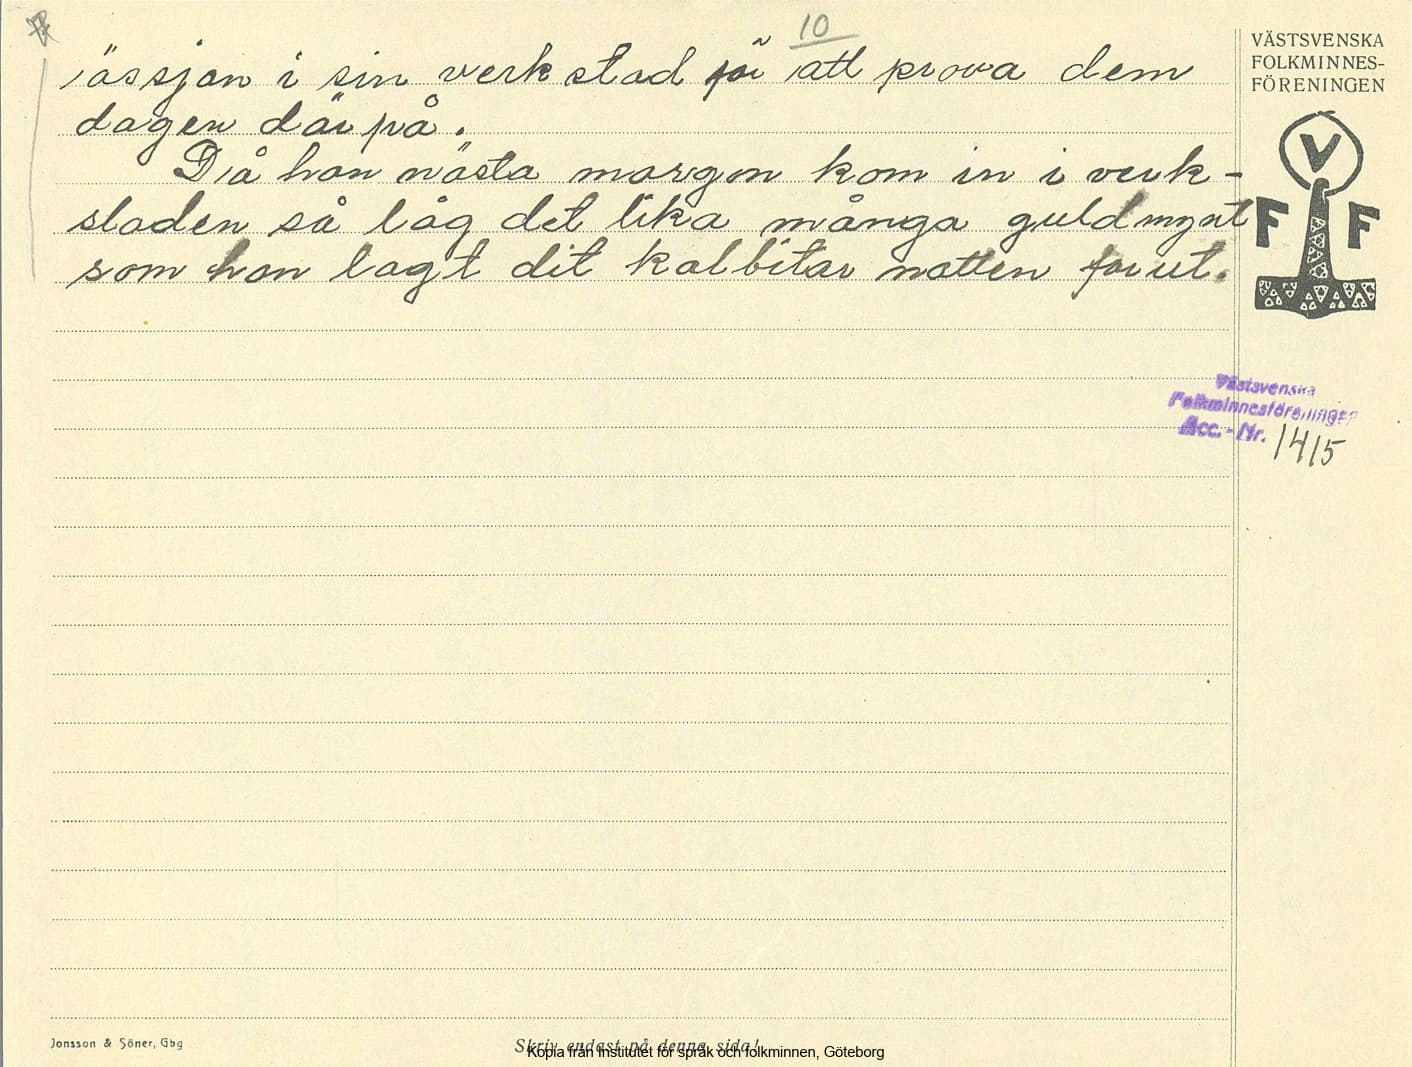 10
ässjan i sin verkstad för att prova dem
dagen där på.
Då han nästa morgon kom in i verk-
staden så låg det lika många guldmynt
som han lagt dit kolbitar natten forut.
VÄSTSVENSKA
FOLKMINNES-
FÖRENINGEN
V
F F
Västsvenska
Folkminnesföreningen
Acc. - Nr. 1415
Jonsson & Söner, Gbg
Skriv endast på denna sida!
Kopia från Institutet för språk och folkminnen, Göteborg